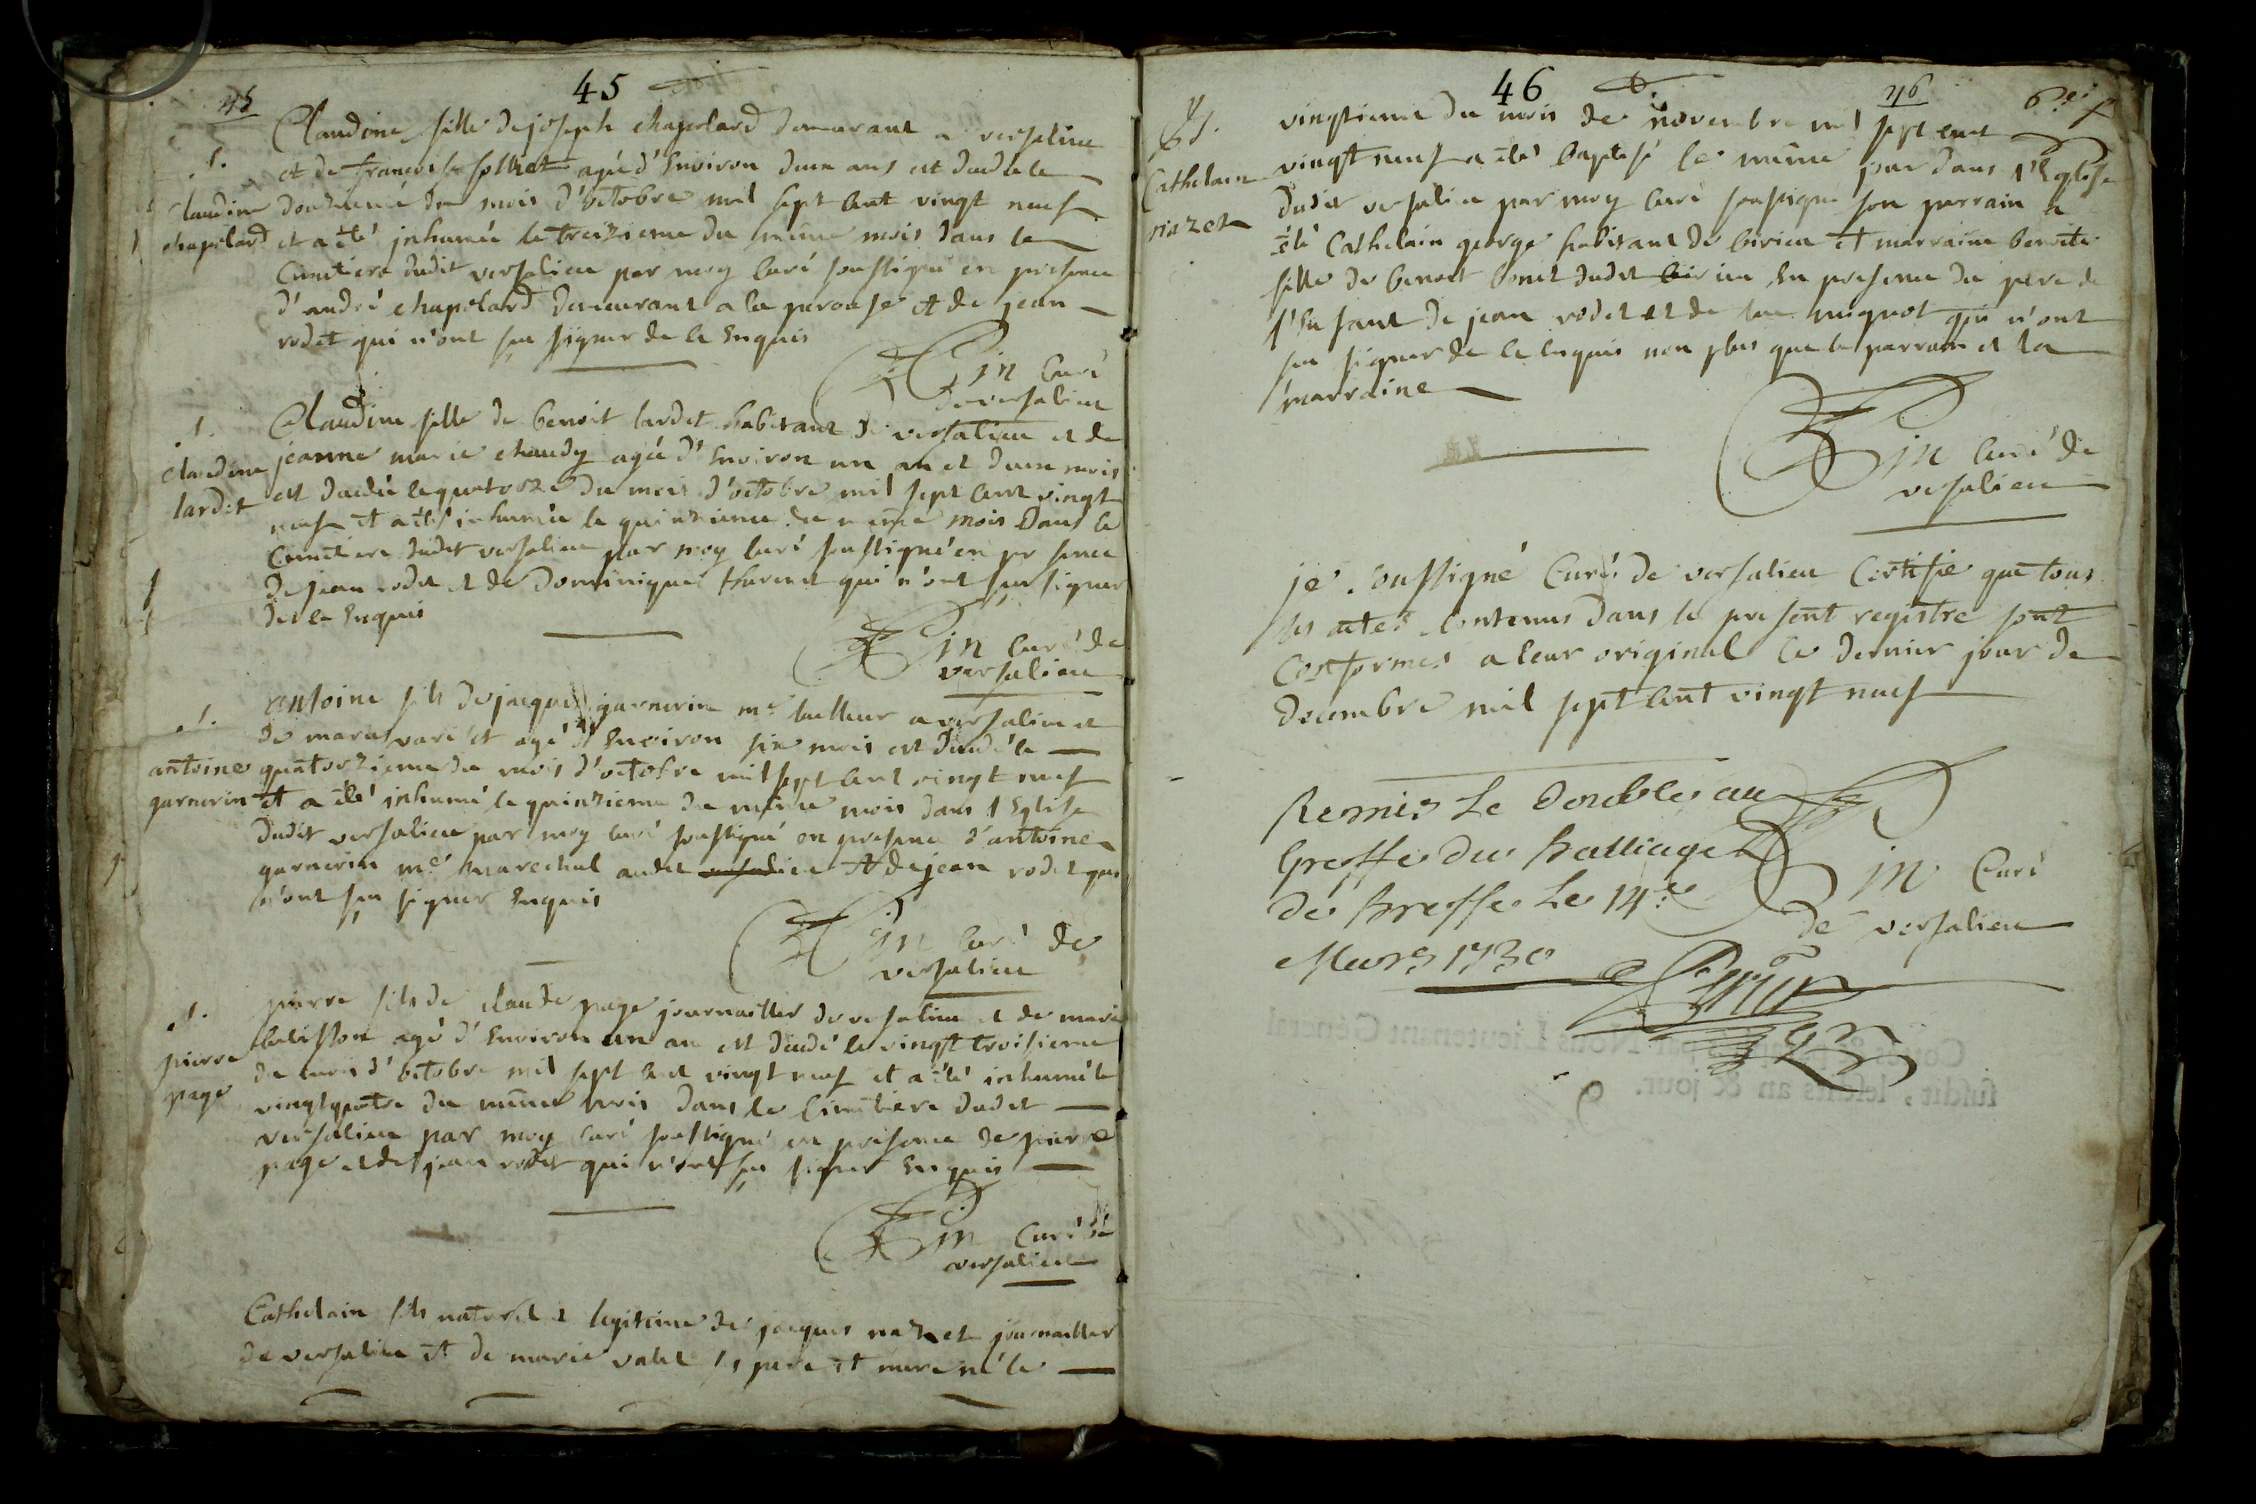 45
45
Claudine fille de joseph chapolard demeurant a versalieu
et de francoise folliet agée d'Environ deux ans est decedée le
douzieme du mois d'octobre mil sept cent vingt neuf
et a été inhumée le treizieme du même mois dans le
Cimetiere dudit versalieu par moy curé soussigné en presence
d'andré chapolard demeurant a la perouse et de jean
rodet qui n'ont sçu signer de ce Enquis
s.
claudine
chapolard
curé
de versalieu
Claudine fille de benoit lardet habitant de versalieu et de
jeanne marie chaudy agée d'Environ un an et deux mois
est decedée le quatorze du mois d'octobre mil sept cent vingt
neuf et a été inhumée le quinzieme du même mois dans le
Cimetiere dudit versalieu par moy curé soussigné en presence
de jean rodet et de Dominique qui n'ont sçu signer
de ce Enquis
s.
claudine
lardet
curé de
versalieu
antoine fils de jacques garnerin me tailleur a versalieu et
de marie agé d'Environ six mois est decedé le
quatorzieme du mois d'octobre mil sept cent vingt neuf
et a été inhumé le quinzieme du même mois dans l'Eglise
dudit versalieu par moy curé soussigné en presence d'antoine
garnerin me marechal audit versalieu et de jean rodet qui
n'ont sçu signer Enquis
s.
antoine
garnerin
curé de
versalieu
pierre fils de claude page journallier de versalieu et de marie
agé d'Environ un an est decedé le vingt troisieme
du mois d'octobre mil sept cent vingt neuf et a été inhumé le
vingt quatre du même mois dans le Cimetiere dudit
versalieu par moy curé soussigné en presence de pierre
page et de jean rodet qui n'ont sçu signer Enquis
s.
pierre
page
curé de
versalieu
Cathelain fils naturel et legitime de jacques nazet journallier
de versalieu et de marie valet ses pere et mere né le
46
46
vingtieme du mois de novembre mil sept cent
vingt neuf a été baptisé le même jour dans l'Eglise
dudit versalieu par moy curé soussigné son parrain a
été Cathelain george habitant de et marraine benoite
fille de benoit dudit en presence du pere de
l'Enfant de jean rodet et de mignot qui n'ont
sçu signer de ce Enquis non plus que le parrain et la
marraine
Cathelain
nazet
curé de
versalieu
je soussigné Curé de versalieu Certifie que tous
les actes contenus dans le present registre sont
Conformes a leur original Ce dernier jour de
decembre mil sept cent vingt neuf
Remis Le Double au
Greffe du Balliage
de Bresse Le 14e
Mars 1730
Curé
de versalieu
par Nous Lieutenant Général
susdit, lesdits an & jour.